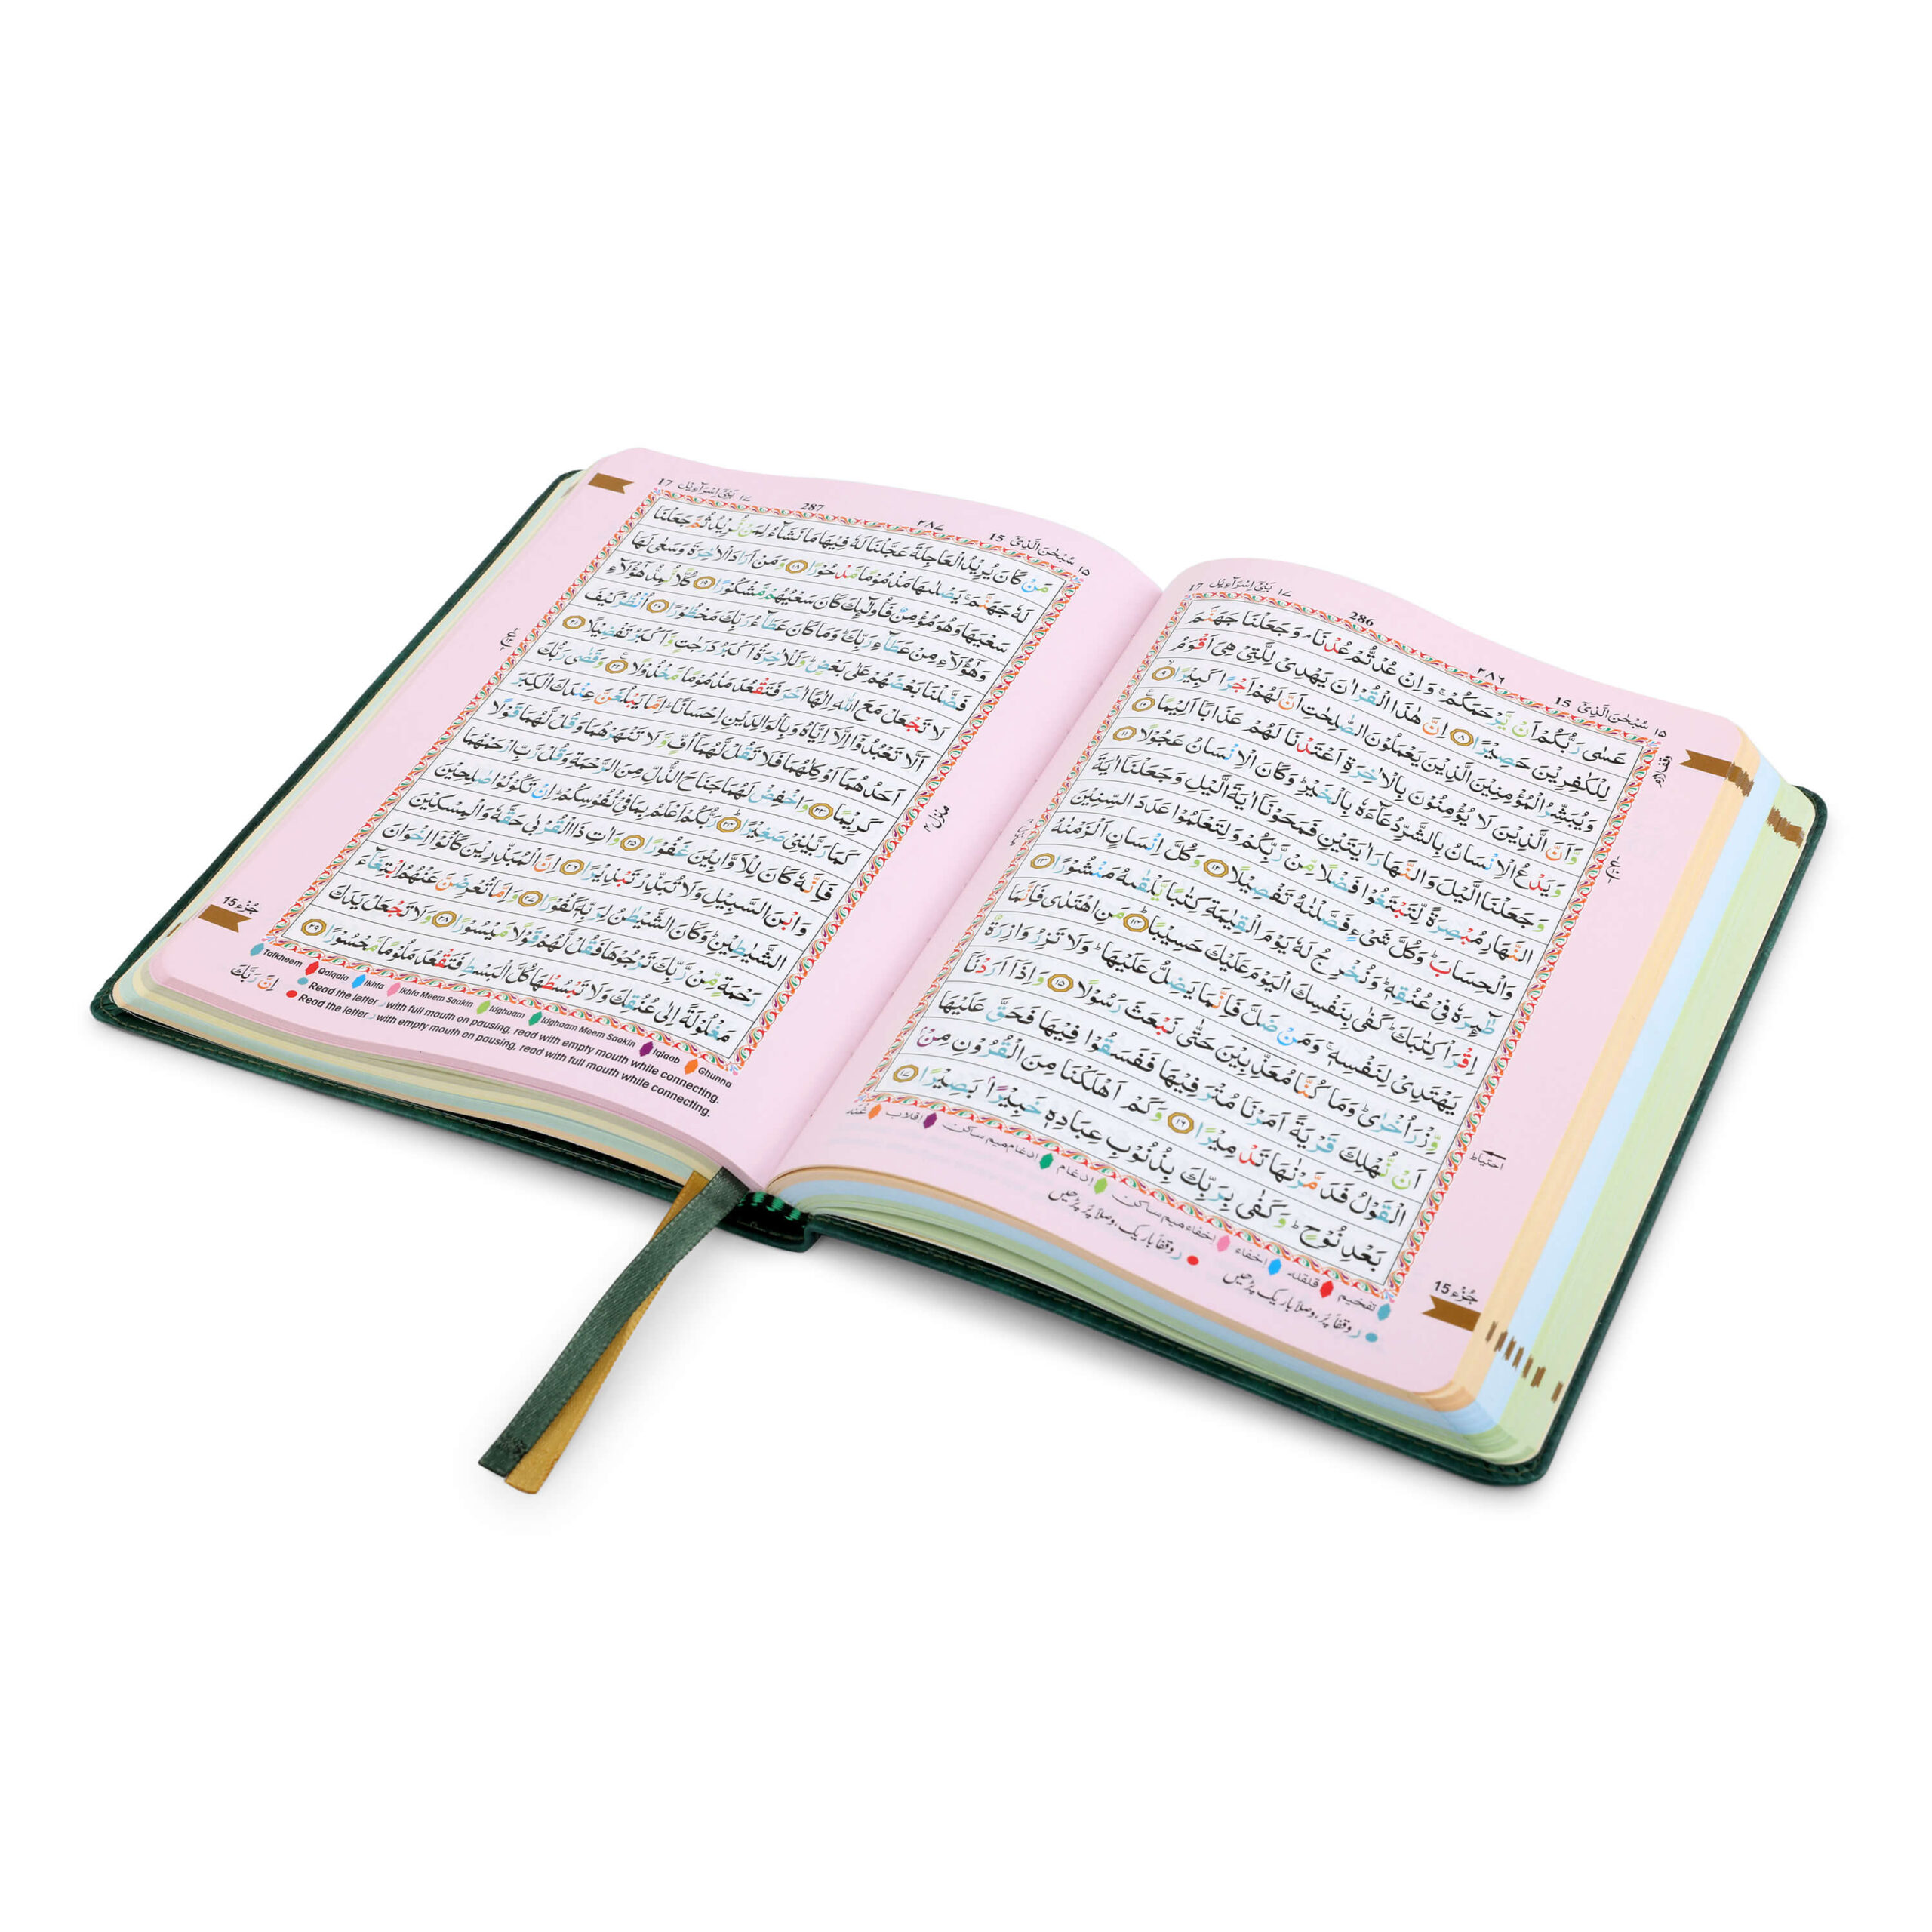 ١٥ سُبْحٰنَ الَّذِيْٓ 15
٢٨٦
286
١٧ بَنِيْٓ اِسْرَآءِيْل 17
عَسٰى رَبُّكُمْ اَنْ يَّرْحَمَكُمْ ۚ وَاِنْ عُدْتُّمْ عُدْنَا ۘ وَجَعَلْنَا جَهَنَّمَ
لِلْكٰفِرِيْنَ حَصِيْرًا ۝٨ اِنَّ هٰذَا الْقُرْاٰنَ يَهْدِيْ لِلَّتِيْ هِيَ اَقْوَمُ
وَيُبَشِّرُ الْمُؤْمِنِيْنَ الَّذِيْنَ يَعْمَلُوْنَ الصّٰلِحٰتِ اَنَّ لَهُمْ اَجْرًا كَبِيْرًا ۝٩
وَّاَنَّ الَّذِيْنَ لَا يُؤْمِنُوْنَ بِالْاٰخِرَةِ اَعْتَدْنَا لَهُمْ عَذَابًا اَلِيْمًا ۝١٠
وَيَدْعُ الْاِنْسَانُ بِالشَّرِّ دُعَآءَهٗ بِالْخَيْرِ ؕ وَكَانَ الْاِنْسَانُ عَجُوْلًا ۝١١
وَجَعَلْنَا الَّيْلَ وَالنَّهَارَ اٰيَتَيْنِ فَمَحَوْنَآ اٰيَةَ الَّيْلِ وَجَعَلْنَآ اٰيَةَ
النَّهَارِ مُبْصِرَةً لِّتَبْتَغُوْا فَضْلًا مِّنْ رَّبِّكُمْ وَلِتَعْلَمُوْا عَدَدَ السِّنِيْنَ
وَالْحِسَابَ ؕ وَكُلَّ شَيْءٍ فَصَّلْنٰهُ تَفْصِيْلًا ۝١٢ وَكُلَّ اِنْسَانٍ اَلْزَمْنٰهُ
طٰٓئِرَهٗ فِيْ عُنُقِهٖ ؕ وَنُخْرِجُ لَهٗ يَوْمَ الْقِيٰمَةِ كِتٰبًا يَّلْقٰىهُ مَنْشُوْرًا ۝١٣
اِقْرَاْ كِتٰبَكَ ؕ كَفٰى بِنَفْسِكَ الْيَوْمَ عَلَيْكَ حَسِيْبًا ؕ ۝١٤ مَنِ اهْتَدٰى فَاِنَّمَا
يَهْتَدِيْ لِنَفْسِهٖ ۚ وَمَنْ ضَلَّ فَاِنَّمَا يَضِلُّ عَلَيْهَا ؕ وَلَا تَزِرُ وَازِرَةٌ
وِّزْرَ اُخْرٰى ؕ وَمَا كُنَّا مُعَذِّبِيْنَ حَتّٰى نَبْعَثَ رَسُوْلًا ۝١٥ وَاِذَآ اَرَدْنَآ
اَنْ نُّهْلِكَ قَرْيَةً اَمَرْنَا مُتْرَفِيْهَا فَفَسَقُوْا فِيْهَا فَحَقَّ عَلَيْهَا
الْقَوْلُ فَدَمَّرْنٰهَا تَدْمِيْرًا ۝١٦ وَكَمْ اَهْلَكْنَا مِنَ الْقُرُوْنِ مِنْۢ
بَعْدِ نُوْحٍ ؕ وَكَفٰى بِرَبِّكَ بِذُنُوْبِ عِبَادِهٖ خَبِيْرًاۢ بَصِيْرًا ۝١٧
احتیاط
جُزْء 15
تفخیم قلقلہ اخفاء اخفاء میم ساکن ادغام ادغام میم ساکن اقلاب غنّہ
ر وقفاً پُر، وصلاً باریک پڑھیں ر وقفاً باریک، وصلاً پُر پڑھیں
١٥ سُبْحٰنَ الَّذِيْٓ 15
٢٨٧
287
١٧ بَنِيْٓ اِسْرَآءِيْل 17
مَنْ كَانَ يُرِيْدُ الْعَاجِلَةَ عَجَّلْنَا لَهٗ فِيْهَا مَا نَشَآءُ لِمَنْ نُّرِيْدُ ثُمَّ جَعَلْنَا
لَهٗ جَهَنَّمَ ۚ يَصْلٰىهَا مَذْمُوْمًا مَّدْحُوْرًا ۝١٨ وَمَنْ اَرَادَ الْاٰخِرَةَ وَسَعٰى لَهَا
سَعْيَهَا وَهُوَ مُؤْمِنٌ فَاُولٰٓئِكَ كَانَ سَعْيُهُمْ مَّشْكُوْرًا ۝١٩ كُلًّا نُّمِدُّ هٰٓؤُلَآءِ
وَهٰٓؤُلَآءِ مِنْ عَطَآءِ رَبِّكَ ؕ وَمَا كَانَ عَطَآءُ رَبِّكَ مَحْظُوْرًا ۝٢٠ اُنْظُرْ كَيْفَ
فَضَّلْنَا بَعْضَهُمْ عَلٰى بَعْضٍ ؕ وَلَلْاٰخِرَةُ اَكْبَرُ دَرَجٰتٍ وَّاَكْبَرُ تَفْضِيْلًا ۝٢١
لَا تَجْعَلْ مَعَ اللّٰهِ اِلٰهًا اٰخَرَ فَتَقْعُدَ مَذْمُوْمًا مَّخْذُوْلًا ۝٢٢ وَقَضٰى رَبُّكَ
اَلَّا تَعْبُدُوْٓا اِلَّآ اِيَّاهُ وَبِالْوَالِدَيْنِ اِحْسَانًا ؕ اِمَّا يَبْلُغَنَّ عِنْدَكَ الْكِبَرَ
اَحَدُهُمَآ اَوْ كِلٰهُمَا فَلَا تَقُلْ لَّهُمَآ اُفٍّ وَّلَا تَنْهَرْهُمَا وَقُلْ لَّهُمَا قَوْلًا
كَرِيْمًا ۝٢٣ وَاخْفِضْ لَهُمَا جَنَاحَ الذُّلِّ مِنَ الرَّحْمَةِ وَقُلْ رَّبِّ ارْحَمْهُمَا
كَمَا رَبَّيٰنِيْ صَغِيْرًا ؕ ۝٢٤ رَبُّكُمْ اَعْلَمُ بِمَا فِيْ نُفُوْسِكُمْ ؕ اِنْ تَكُوْنُوْا صٰلِحِيْنَ
فَاِنَّهٗ كَانَ لِلْاَوَّابِيْنَ غَفُوْرًا ۝٢٥ وَاٰتِ ذَا الْقُرْبٰى حَقَّهٗ وَالْمِسْكِيْنَ
وَابْنَ السَّبِيْلِ وَلَا تُبَذِّرْ تَبْذِيْرًا ۝٢٦ اِنَّ الْمُبَذِّرِيْنَ كَانُوْٓا اِخْوَانَ
الشَّيٰطِيْنِ ؕ وَكَانَ الشَّيْطٰنُ لِرَبِّهٖ كَفُوْرًا ۝٢٧ وَاِمَّا تُعْرِضَنَّ عَنْهُمُ ابْتِغَآءَ
رَحْمَةٍ مِّنْ رَّبِّكَ تَرْجُوْهَا فَقُلْ لَّهُمْ قَوْلًا مَّيْسُوْرًا ۝٢٨ وَلَا تَجْعَلْ يَدَكَ
مَغْلُوْلَةً اِلٰى عُنُقِكَ وَلَا تَبْسُطْهَا كُلَّ الْبَسْطِ فَتَقْعُدَ مَلُوْمًا مَّحْسُوْرًا ۝٢٩
منزل ٤
جُزْء 15
Tafkheem Qalqala Ikhfa Ikhfa Meem Saakin Idghaam Idghaam Meem Saakin Iqlaab Ghunna
Read the letter ر with full mouth on pausing, read with empty mouth while connecting.
Read the letter ر with empty mouth on pausing, read with full mouth while connecting.
اِنَّ رَبَّكَ